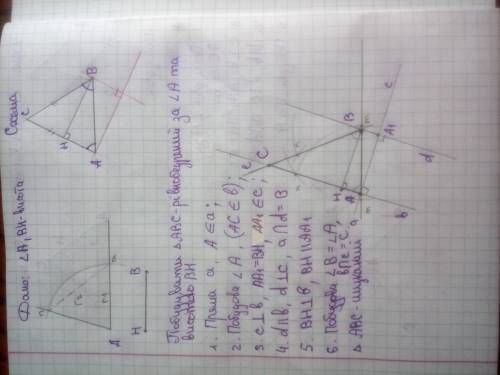 Дано: ∠A, BH-висота
Схема
A
m
n
H B
C
B
H
A
Побудувати △ABC-рівнобедрений за ∠A та
висотою BH
1. Пряма a, A ∈ a;
2. Побудова ∠A, (AC ∈ b);
3. c⊥b, AA₁=BH, AA₁ ∈ c;
4. d∥b, d⊥c, a∩d=B
5. BH⊥b, BH∥AA₁
6. Побудова ∠B=∠A,
b∩e=C,
△ABC-шуканий
e
C
B
m
c
A₁
H
A
a
b
d